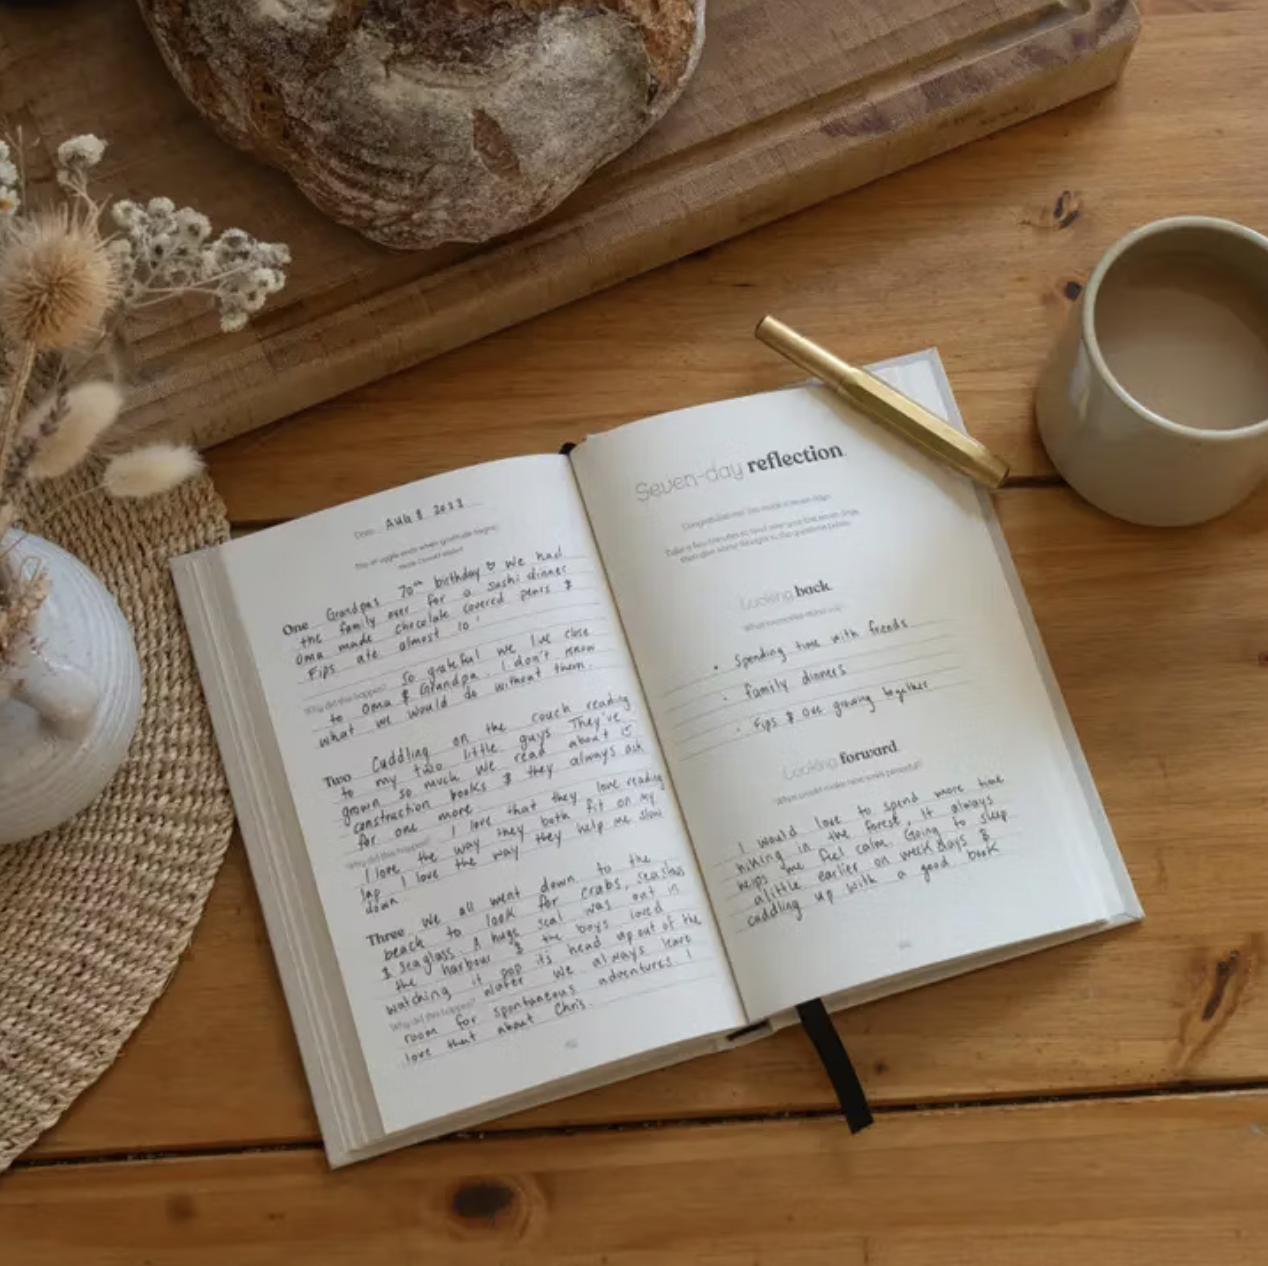 Date: AUG 8 2023
The struggle ends when gratitude begins.
One Grandpas 70th birthday ♡ we had
the family over for a sushi dinner
Oma made chocolate covered pears &
Fips ate almost 10!
Why did this happen? So grateful we live close
to Oma & Grandpa. I don't know
what we would do without them.
Two Cuddling on the couch reading
to my two little guys They've
grown so much we read about
construction books & they always ask
for one more.
Why did this happen? I love that they love reading
I love the way they both fit on my
lap I love the way they help me slow
down
Three We all went down to the
beach to look for crabs, seashells
& seaglass. A huge seal was out in
the harbour & the boys loved
watching it pop its head up out of the
Why did this happen? water we always leave
room for spontaneous adventures I
love that about Chris.
Seven-day reflection.
Looking back.
• Spending time with friends
• family dinners
• Fips & growing together
Looking forward.
I would love to spend more time
hiking in the forest, it always
helps me feel calm. Going to sleep
a little earlier on weekdays &
cuddling up with a good book